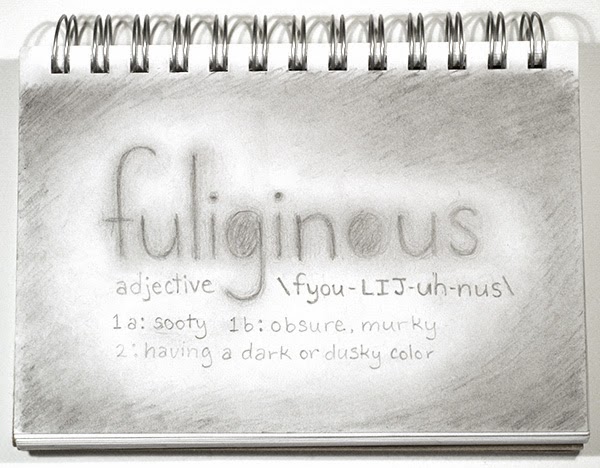 fuliginous
adjective \fyou-LIJ-uh-nus\
1a: sooty 1b: obsure, murky
2: having a dark or dusky color